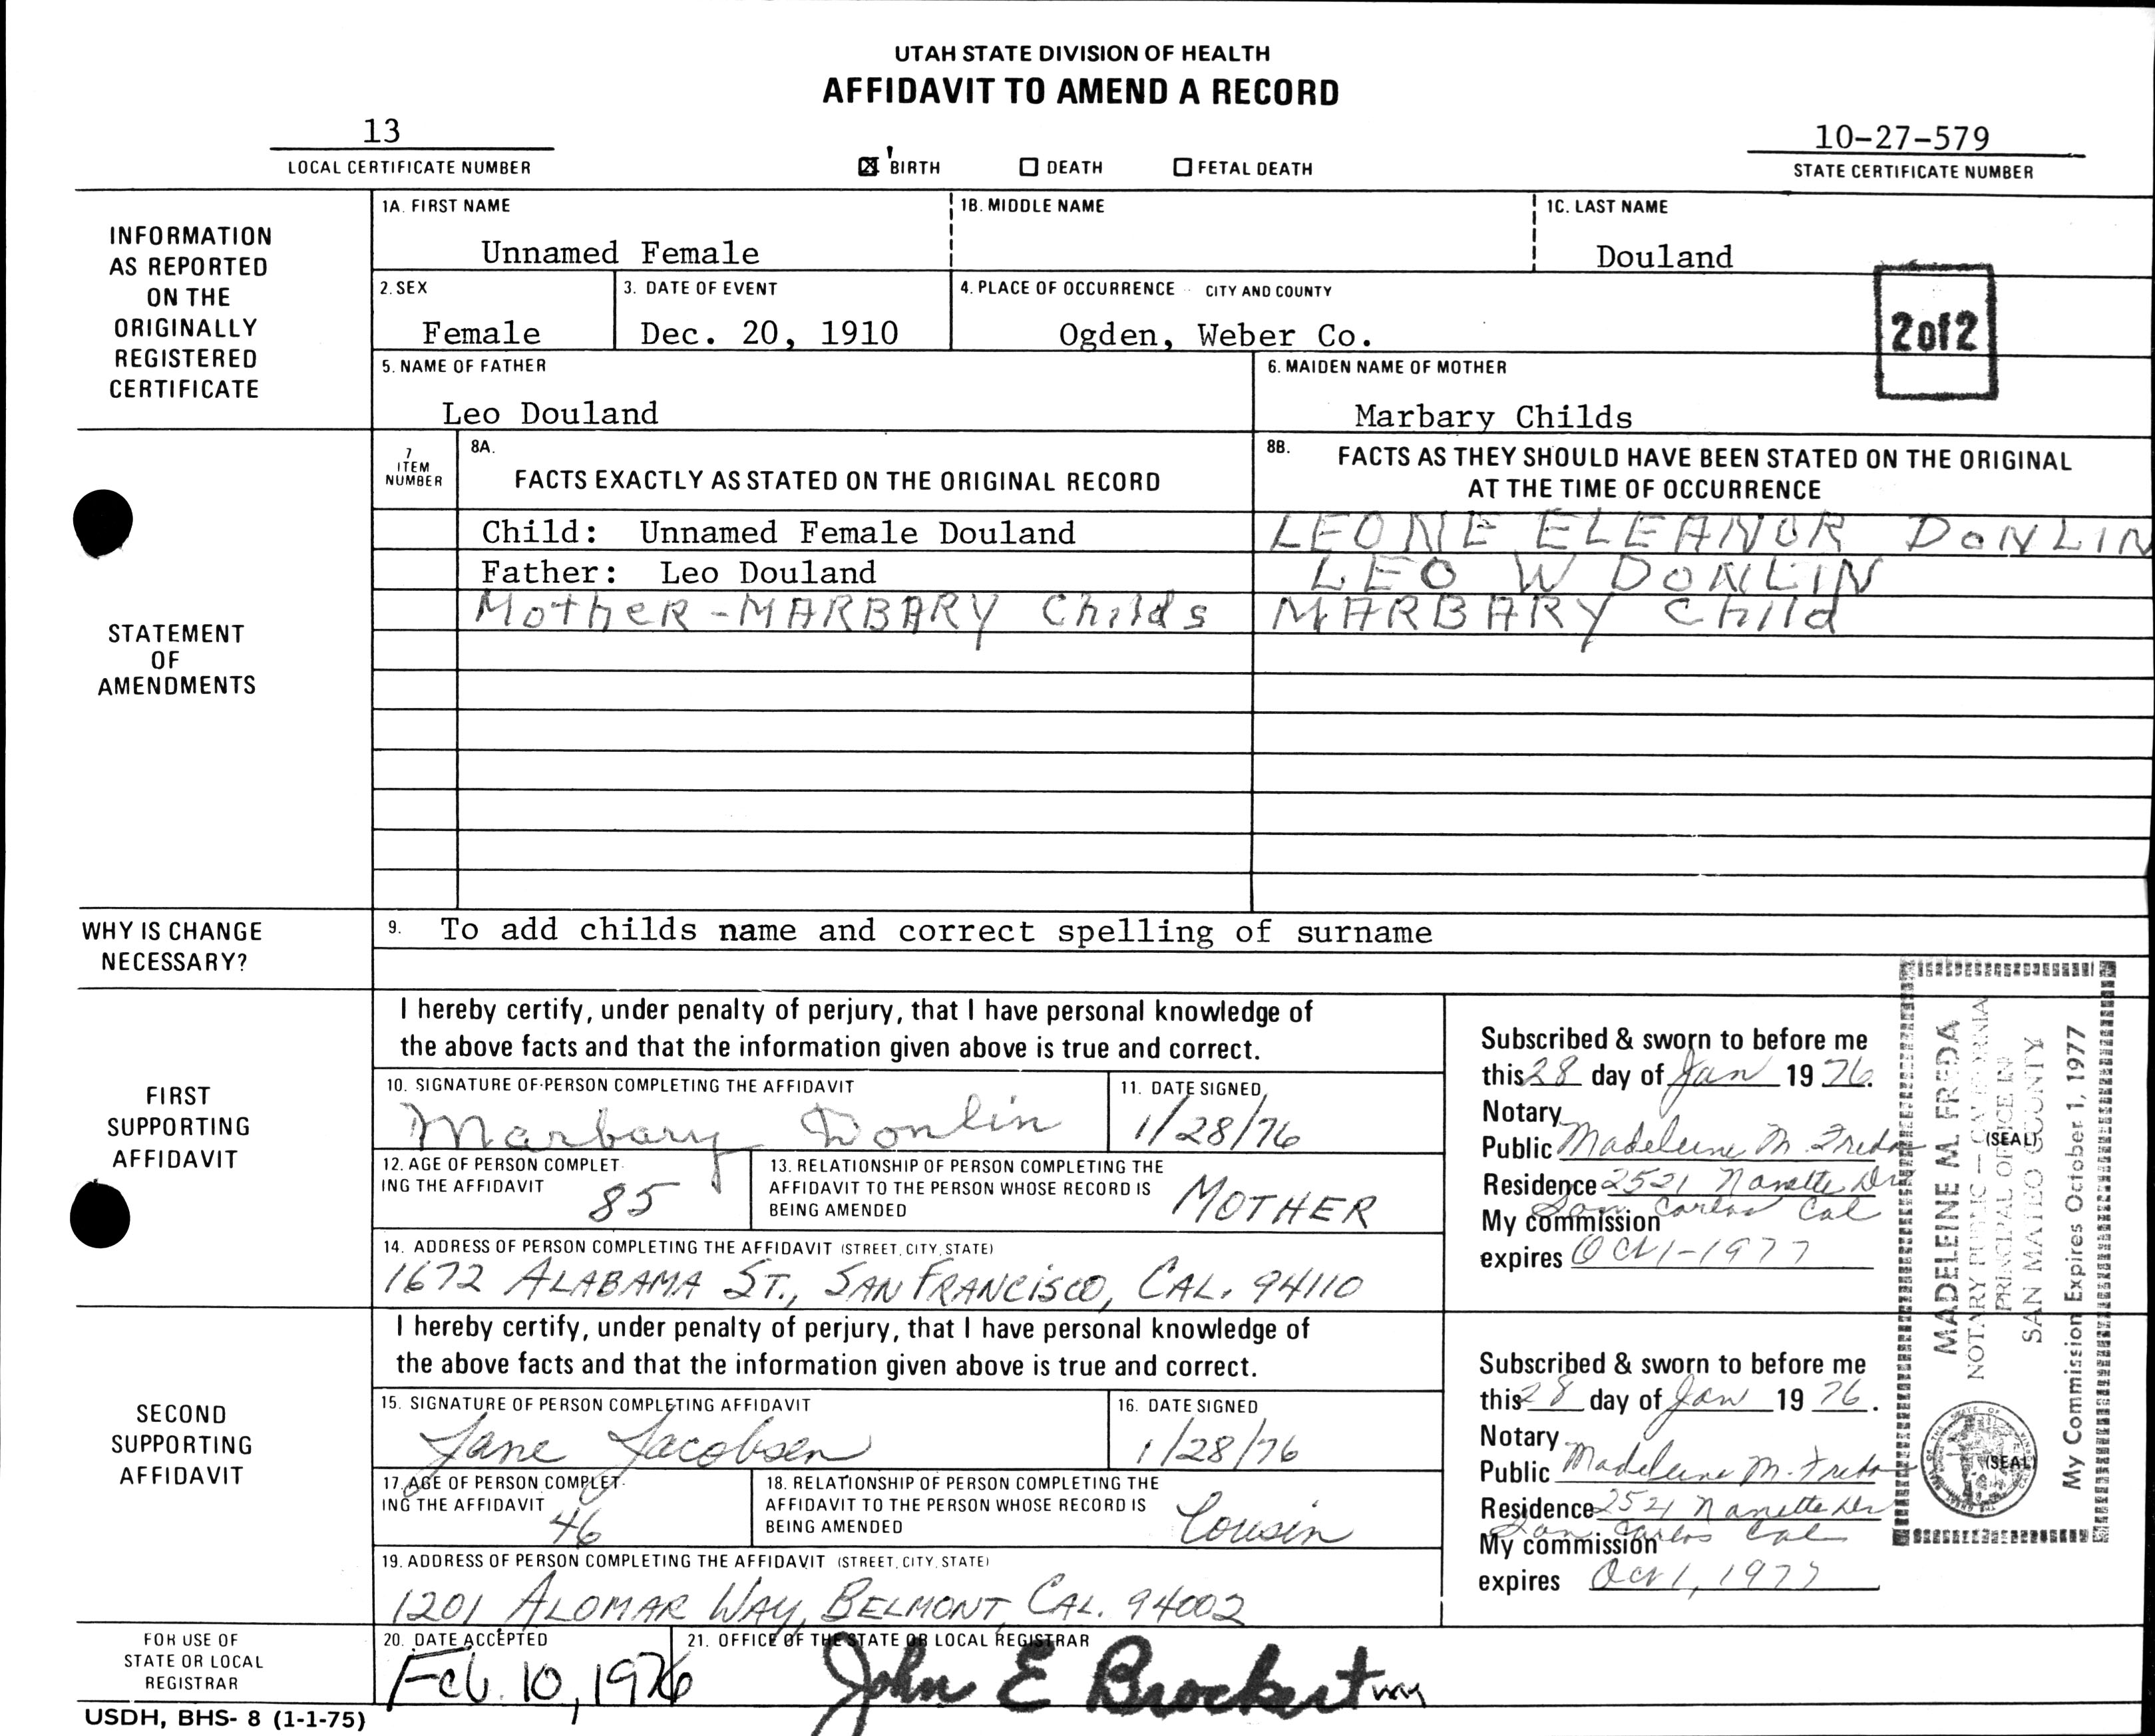 UTAH STATE DIVISION OF HEALTH
AFFIDAVIT TO AMEND A RECORD
13
LOCAL CERTIFICATE NUMBER
☒ BIRTH ☐ DEATH ☐ FETAL DEATH
10-27-579
STATE CERTIFICATE NUMBER
INFORMATION
AS REPORTED
ON THE
ORIGINALLY
REGISTERED
CERTIFICATE
1A. FIRST NAME
Unnamed Female
1B. MIDDLE NAME
1C. LAST NAME
Douland
2. SEX
Female
3. DATE OF EVENT
Dec. 20, 1910
4. PLACE OF OCCURRENCE CITY AND COUNTY
Ogden, Weber Co.
2 of 2
5. NAME OF FATHER
Leo Douland
6. MAIDEN NAME OF MOTHER
Marbary Childs
STATEMENT
OF
AMENDMENTS
7
ITEM
NUMBER
8A.
FACTS EXACTLY AS STATED ON THE ORIGINAL RECORD
8B.
FACTS AS THEY SHOULD HAVE BEEN STATED ON THE ORIGINAL
AT THE TIME OF OCCURRENCE
Child: Unnamed Female Douland
LEONE ELEANOR DONLIN
Father: Leo Douland
LEO W DONLIN
MotheR - MARBARY Childs
MARBARY Child
WHY IS CHANGE
NECESSARY?
9. To add childs name and correct spelling of surname
FIRST
SUPPORTING
AFFIDAVIT
I hereby certify, under penalty of perjury, that I have personal knowledge of
the above facts and that the information given above is true and correct.
10. SIGNATURE OF PERSON COMPLETING THE AFFIDAVIT
Marbary Donlin
11. DATE SIGNED
1/28/76
12. AGE OF PERSON COMPLET-
ING THE AFFIDAVIT
85
13. RELATIONSHIP OF PERSON COMPLETING THE
AFFIDAVIT TO THE PERSON WHOSE RECORD IS
BEING AMENDED
MOTHER
14. ADDRESS OF PERSON COMPLETING THE AFFIDAVIT (STREET, CITY, STATE)
1672 ALABAMA ST., SAN FRANCISCO, CAL. 94110
Subscribed & sworn to before me
this 28 day of Jan 1976.
Notary
Public Madeleine M. Freda
(SEAL)
Residence 2521 Nanette Dr
San Carlos Cal
My commission
expires Oct 1-1977
MADELEINE M. FREDA
NOTARY PUBLIC — CALIFORNIA
PRINCIPAL OFFICE IN
SAN MATEO COUNTY
My Commission Expires October 1, 1977
SECOND
SUPPORTING
AFFIDAVIT
I hereby certify, under penalty of perjury, that I have personal knowledge of
the above facts and that the information given above is true and correct.
15. SIGNATURE OF PERSON COMPLETING AFFIDAVIT
Jane Jacobsen
16. DATE SIGNED
1/28/76
17. AGE OF PERSON COMPLET-
ING THE AFFIDAVIT
46
18. RELATIONSHIP OF PERSON COMPLETING THE
AFFIDAVIT TO THE PERSON WHOSE RECORD IS
BEING AMENDED
Cousin
19. ADDRESS OF PERSON COMPLETING THE AFFIDAVIT (STREET, CITY, STATE)
1201 ALOMAR WAY, BELMONT, CAL. 94002
Subscribed & sworn to before me
this 28 day of Jan 1976.
Notary
Public Madeleine M. Freda
(SEAL)
Residence 2521 Nanette Dr
San Carlos Cal
My commission
expires Oct 1, 1977
FOR USE OF
STATE OR LOCAL
REGISTRAR
20. DATE ACCEPTED
Feb. 10, 1976
21. OFFICE OF THE STATE OR LOCAL REGISTRAR
John E Brockert
USDH, BHS- 8 (1-1-75)